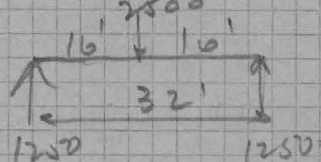 2500
16' 16'
32'
1250 1250